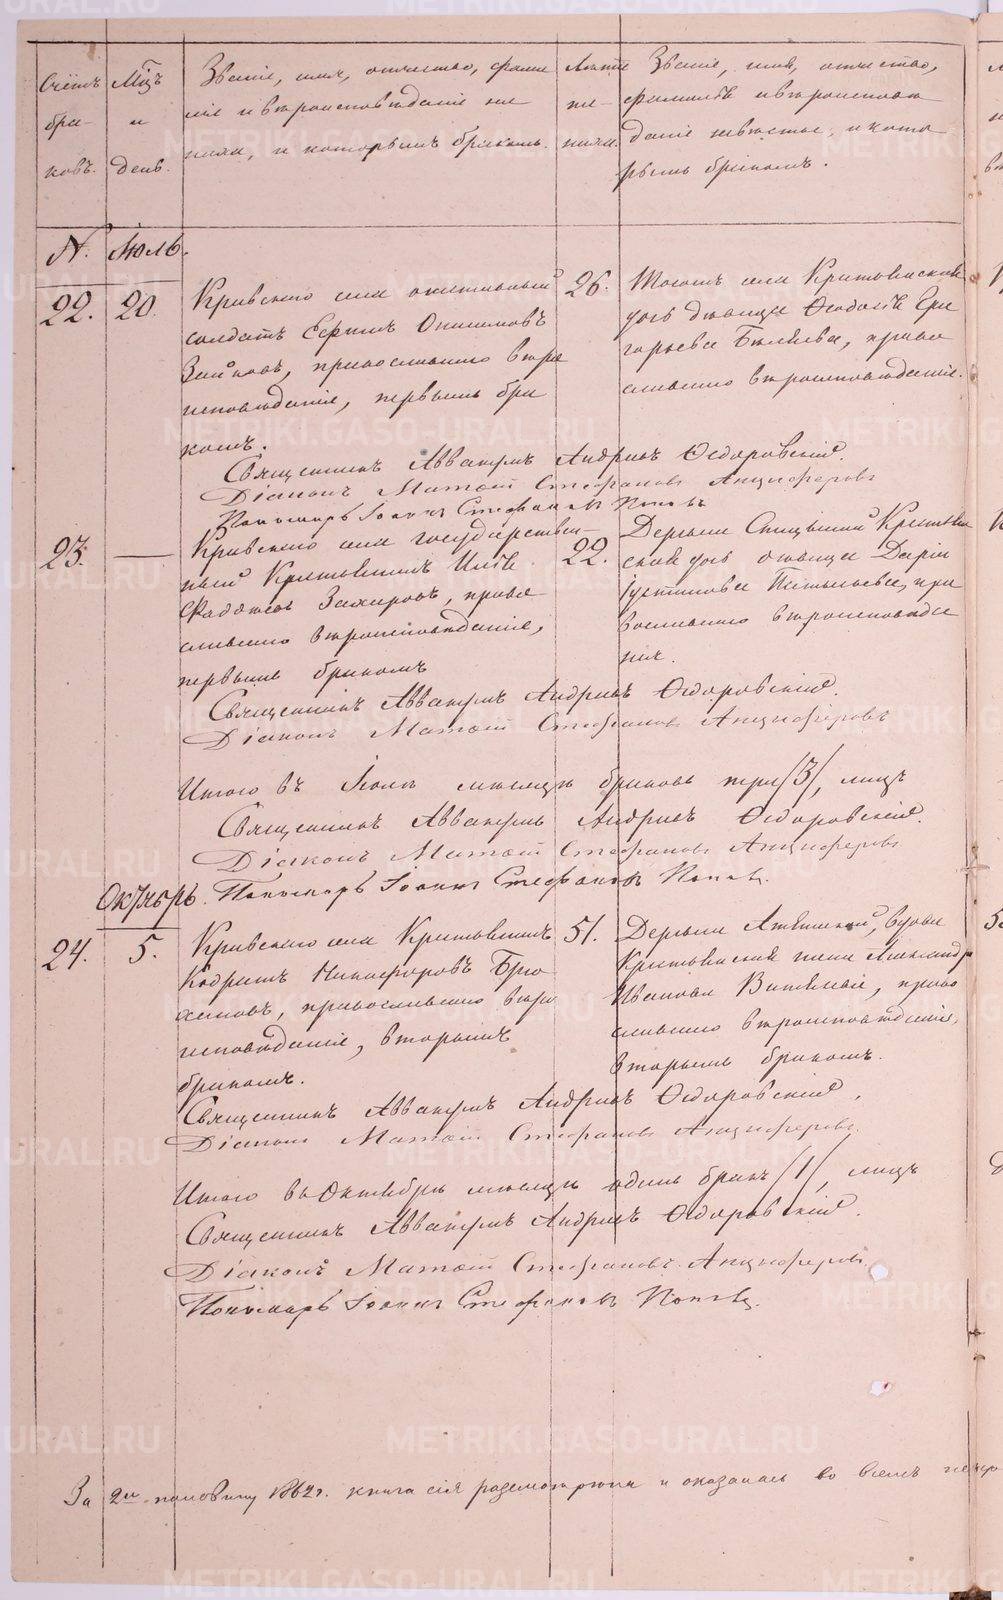 Счетъ бра- ковъ.
Мѣц. и день.
Званіе, имя, отчество, фами
лія и вѣроисповѣданіе же
ниха, и которымъ бракомъ.
Лѣта же- ниха.
Званіе, имя, отчество,
фамилія и вѣроисповѣ
даніе невѣсты, и кото
рымъ бракомъ.
N. Іюль.
22. 20.
Кривскаго села
солдатъ Сергій Онисимовъ
православнаго вѣро
исповѣданія, первымъ бра
комъ.
26.
Тогожъ села Крестьянская
дочь дѣвица Ѳеодосія Гри
горьева Бѣляева, право
славнаго вѣроисповѣданія.
Священникъ Аввакумъ Андреевъ Ѳедоровскій.
Діаконъ Матѳій Стефановъ Анциферовъ
Пономарь Іоаннъ Стефановъ Поповъ
23. —
Кривскаго села государствен-
ный Крестьянинъ Илія
Фадѣевъ Захаровъ, право
славнаго вѣроисповѣданія,
первымъ бракомъ
22.
Деревни Крестьян
ская дочь дѣвица Дарія
Іустинова пра
вославнаго вѣроисповѣда
нія.
Священникъ Аввакумъ Андреевъ Ѳедоровскій.
Діаконъ Матѳій Стефановъ Анциферовъ
Итого въ Іюлѣ мѣсяцѣ браковъ три /3/, лицъ
Священникъ Аввакумъ Андреевъ Ѳедоровскій.
Діаконъ Матѳій Стефановъ Анциферовъ
Пономарь Іоаннъ Стефановъ Поповъ.
Октябрь.
24. 5.
Кривскаго села Крестьянинъ
Кодратъ Никифоровъ
православнаго вѣро
исповѣданія, вторымъ
бракомъ.
51.
Деревни вдова
Крестьянская жена Александра
Иванова право
славнаго вѣроисповѣданія,
вторымъ бракомъ.
Священникъ Аввакумъ Андреевъ Ѳедоровскій.
Діаконъ Матѳій Стефановъ Анциферовъ.
Итого въ Октябрѣ мѣсяцѣ одинъ бракъ /1/, лицъ
Священникъ Аввакумъ Андреевъ Ѳедоровскій.
Діаконъ Матѳій Стефановъ Анциферовъ.
Пономарь Іоаннъ Стефановъ Поповъ.
За 2ю половину 1862 г. книга сія разсмотрѣна и оказалась во всемъ